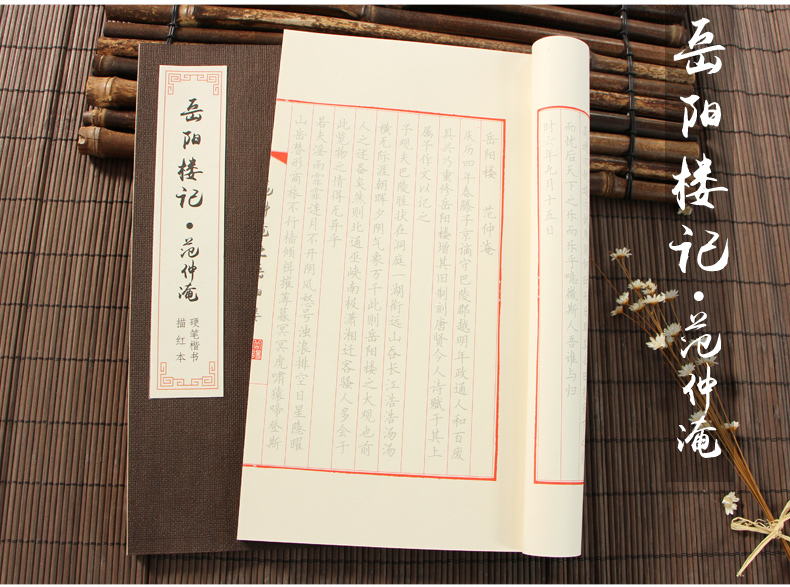 岳阳楼记·范仲淹
硬笔楷书
描红本
而忧后天下之乐而乐乎噫微斯人吾谁与归
时六年九月十五日
岳阳楼 范仲淹
庆历四年春滕子京谪守巴陵郡越明年政通人和百废
具兴乃重修岳阳楼增其旧制刻唐贤今人诗赋于其上
属予作文以记之
予观夫巴陵胜状在洞庭一湖衔远山吞长江浩浩汤汤
横无际涯朝晖夕阴气象万千此则岳阳楼之大观也前
人之述备矣然则北通巫峡南极潇湘迁客骚人多会于
此览物之情得无异乎
若夫淫雨霏霏连月不开阴风怒号浊浪排空日星隐曜
山岳潜形商旅不行樯倾楫摧薄暮冥冥虎啸猿啼登斯
岳阳楼记·范仲淹